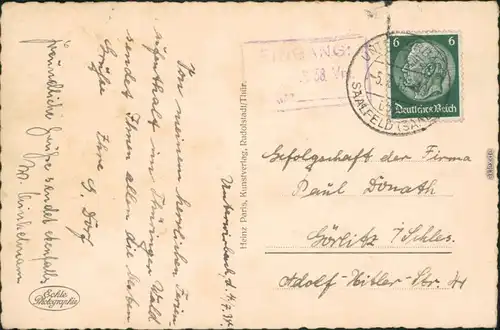 Von meinem herrlichen Ferien-
aufenthalt im Thüringer Wald
sendet Ihnen allen die besten
Grüße Ihre
G. Dorf
Freundliche Grüße sendet ebenfalls
Unterwirbach, d. 4.7.38.
Echte
Photographie
Heinz Paris, Kunstverlag, Rudolstadt/Thür.
EINGANG:
SAALFELD (SAALE)
6 6
Deutsches Reich
Gefolgschaft der Firma
Paul Donath
Görlitz /Schles.
Adolf-Hitler-Str.